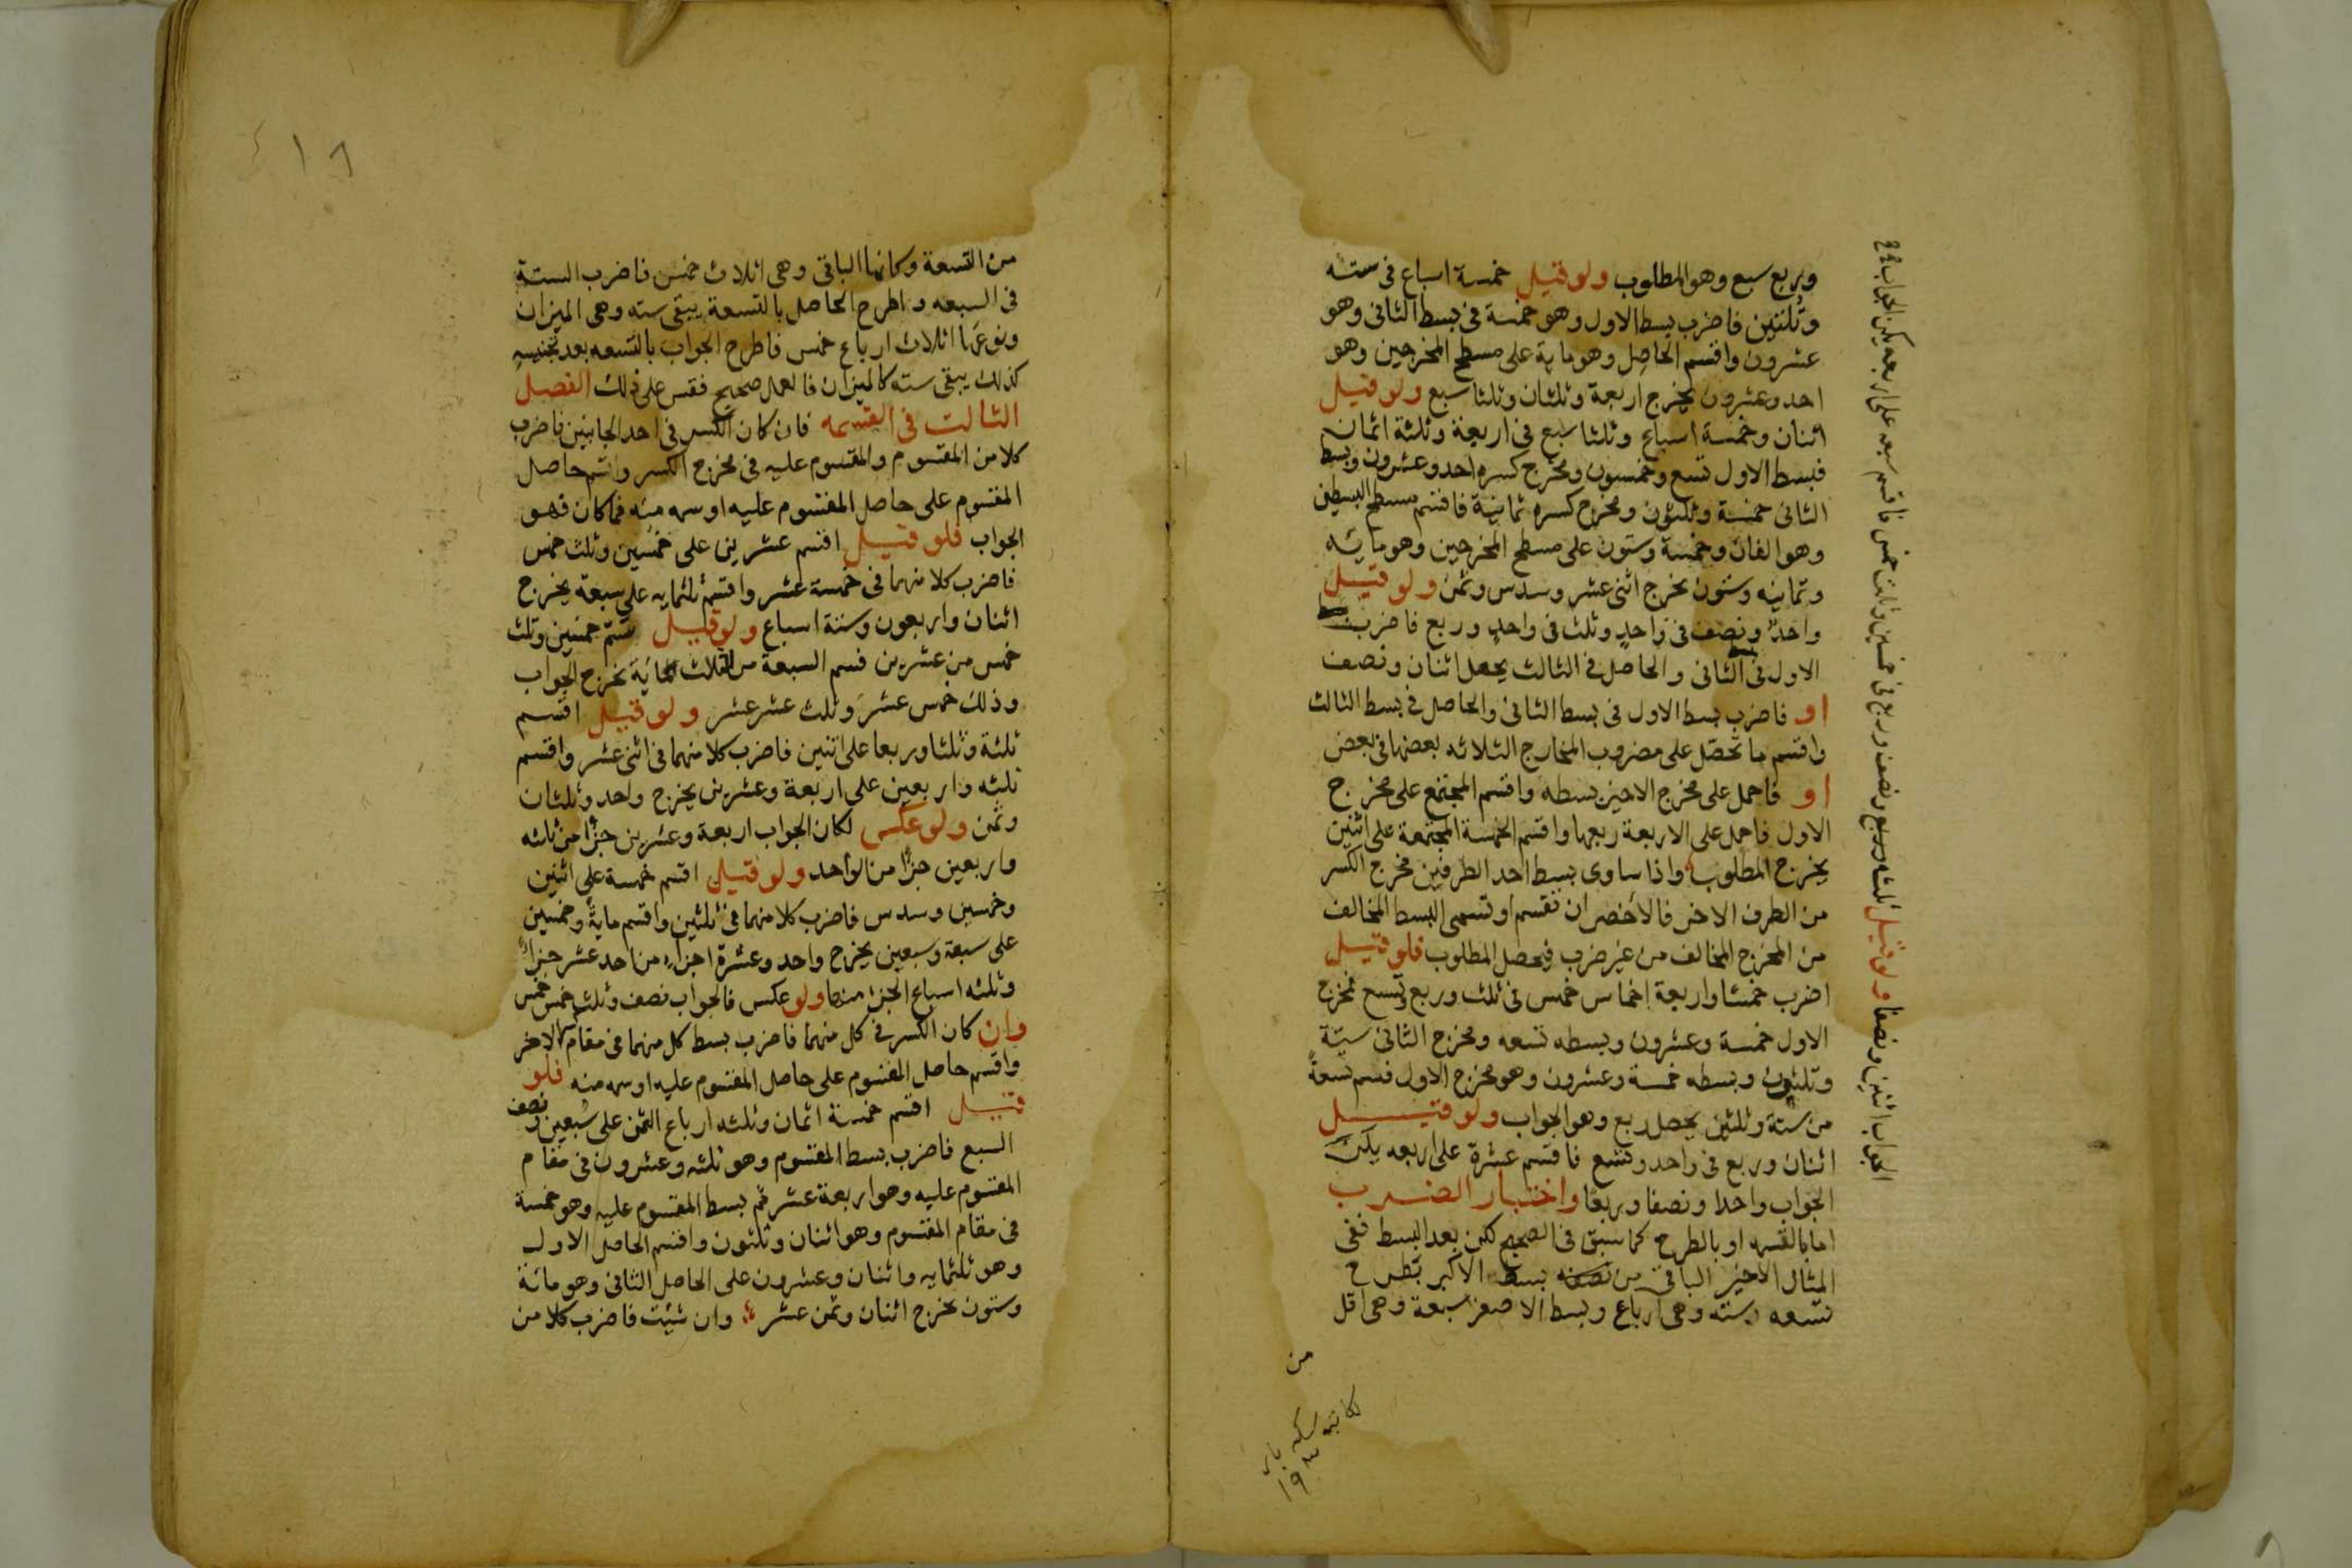 وربع سبع وهو المطلوب ولو قيل خمسة اسباع فى سته
وثلثين فاضرب بسط الاول وهو خمسة فى بسط الثانى وهو
عشرون واقسم الحاصل وهو ماية على مسطح المخرجين وهو
احد وعشرون يخرج اربعة وثلثان وثلثا سبع ولو قيل
اثنان وخمسة اسباع وثلثا سبع فى اربعة وثلثة اثمان
فبسط الاول تسع وخمسون ومخرج كسره احد وعشرون وبسط
الثانى خمسة وثلثون ومخرج كسره ثمانية فاقسم مسطح البسطين
وهو الفان وخمسة وستون على مسطح المخرجين وهو مائه
وثمانيه وستون يخرج اثنى عشر وسدس وثمن ولو قيل
واحد ونصف فى واحد وثلث فى واحد وربع فاضرب بسط
الاول فى بسط الثانى والحاصل فى الثالث يحصل اثنان ونصف
او فاضرب بسط الاول فى بسط الثانى والحاصل فى بسط الثالث
واقسم ما تحصل على مضروب المخارج الثلاثه بعضها فى بعض
او فاحمل على مخرج الاخير بسطه واقسم المجتمع على مخرج
الاول فاحمل على الاربعة ربعها واقسم الخمسة المجتمعة على اثنين
يخرج المطلوب واذا ساوى بسط احد الطرفين مخرج الكسر
من الطرف الاخر فالاخصر ان تقسم او تسمى البسط المخالف
من المخرج المخالف من غير ضرب فيحصل المطلوب فلو قيل
اضرب خمسا واربعة اخماس خمس فى ثلث وربع وتسع فمخرج
الاول خمسة وعشرون وبسطه تسعه ومخرج الثانى ستة
وثلثون وبسطه خمسة وعشرون وهو مخرج الاول فسم تسعة
من ستة وثلثين يحصل ربع وهو الجواب ولو قيل
اثنان وربع فى واحد وتسع فاقسم عشرة على اربعه يكن
الجواب واحدا ونصفا وربعا واختبار الضرب
اما بالقسمه او بالطرح كما سبق فى الصحيح لكن بعد البسط ففى
المثال الاخير الباقى من بسط الاكبر بطرح
تسعه سته وهى ارباع وبسط الاصغر سبعة وهى اقل
من
ولو قيل اثنين ونصفا
من التسعة وكانها الباقى وهى اثلاث خمس فاضرب الستة
فى السبعه واطرح الحاصل بالتسعة يبقى سته وهى الميزان
ونوعها اثلاث ارباع خمس فاطرح الجواب بالتسعه بعد تجنيسه
كذلك يبقى سته كالميزان فالعمل صحيح فقس على ذلك الفصل
الثالث فى القسمه فان كان الكسر فى احد الجانبين فاضرب
كلا من المقسوم والمقسوم عليه فى مخرج الكسر واقسم حاصل
المقسوم على حاصل المقسوم عليه او سمه منه فما كان فهو
الجواب فلو قيل اقسم عشرين على خمسين وثلث خمس
فاضرب كلا منهما فى خمسة عشر واقسم ثلثمايه على سبعة يخرج
اثنان واربعون وستة اسباع ولو قيل سم خمسين وثلث
خمس من عشرين فسم السبعة من الثلاث مائة يخرج الجواب
وذلك خمس عشر وثلث عشر عشر ولو قيل اقسم
ثلثة وثلثا وربعا على اثنين فاضرب كلا منهما فى اثنى عشر واقسم
ثلثه واربعين على اربعة وعشرين يخرج واحد وثلثان
وثمن ولو عكس لكان الجواب اربعة وعشرين جزا من ثلثه
واربعين جزا من الواحد ولو قيل اقسم خمسة على اثنين
وخمسين وسدس فاضرب كلا منهما فى ثلثين واقسم ماية وخمسين
على سبعة وسبعين يخرج واحد وعشرة اجزاء من احد عشر جزا
وثلثه اسباع الجزء منها ولو عكس فالجواب نصف وثلث خمس خمس
وان كان الكسر فى كل منهما فاضرب بسط كل منهما فى مقام الاخر
واقسم حاصل المقسوم على حاصل المقسوم عليه او سمه منه فلو
قيل اقسم خمسة اثمان وثلثه ارباع الثمن على سبعين ونصف
السبع فاضرب بسط المقسوم وهو ثلثه وعشرون فى مقام
المقسوم عليه وهو اربعة عشر ثم بسط المقسوم عليه وهو خمسة
فى مقام المقسوم وهو اثنان وثلثون واقسم الحاصل الاول
وهو ثلثمايه واثنان وعشرون على الحاصل الثانى وهو مائة
وستون يخرج اثنان وثمن عشر وان شئت فاضرب كلا من